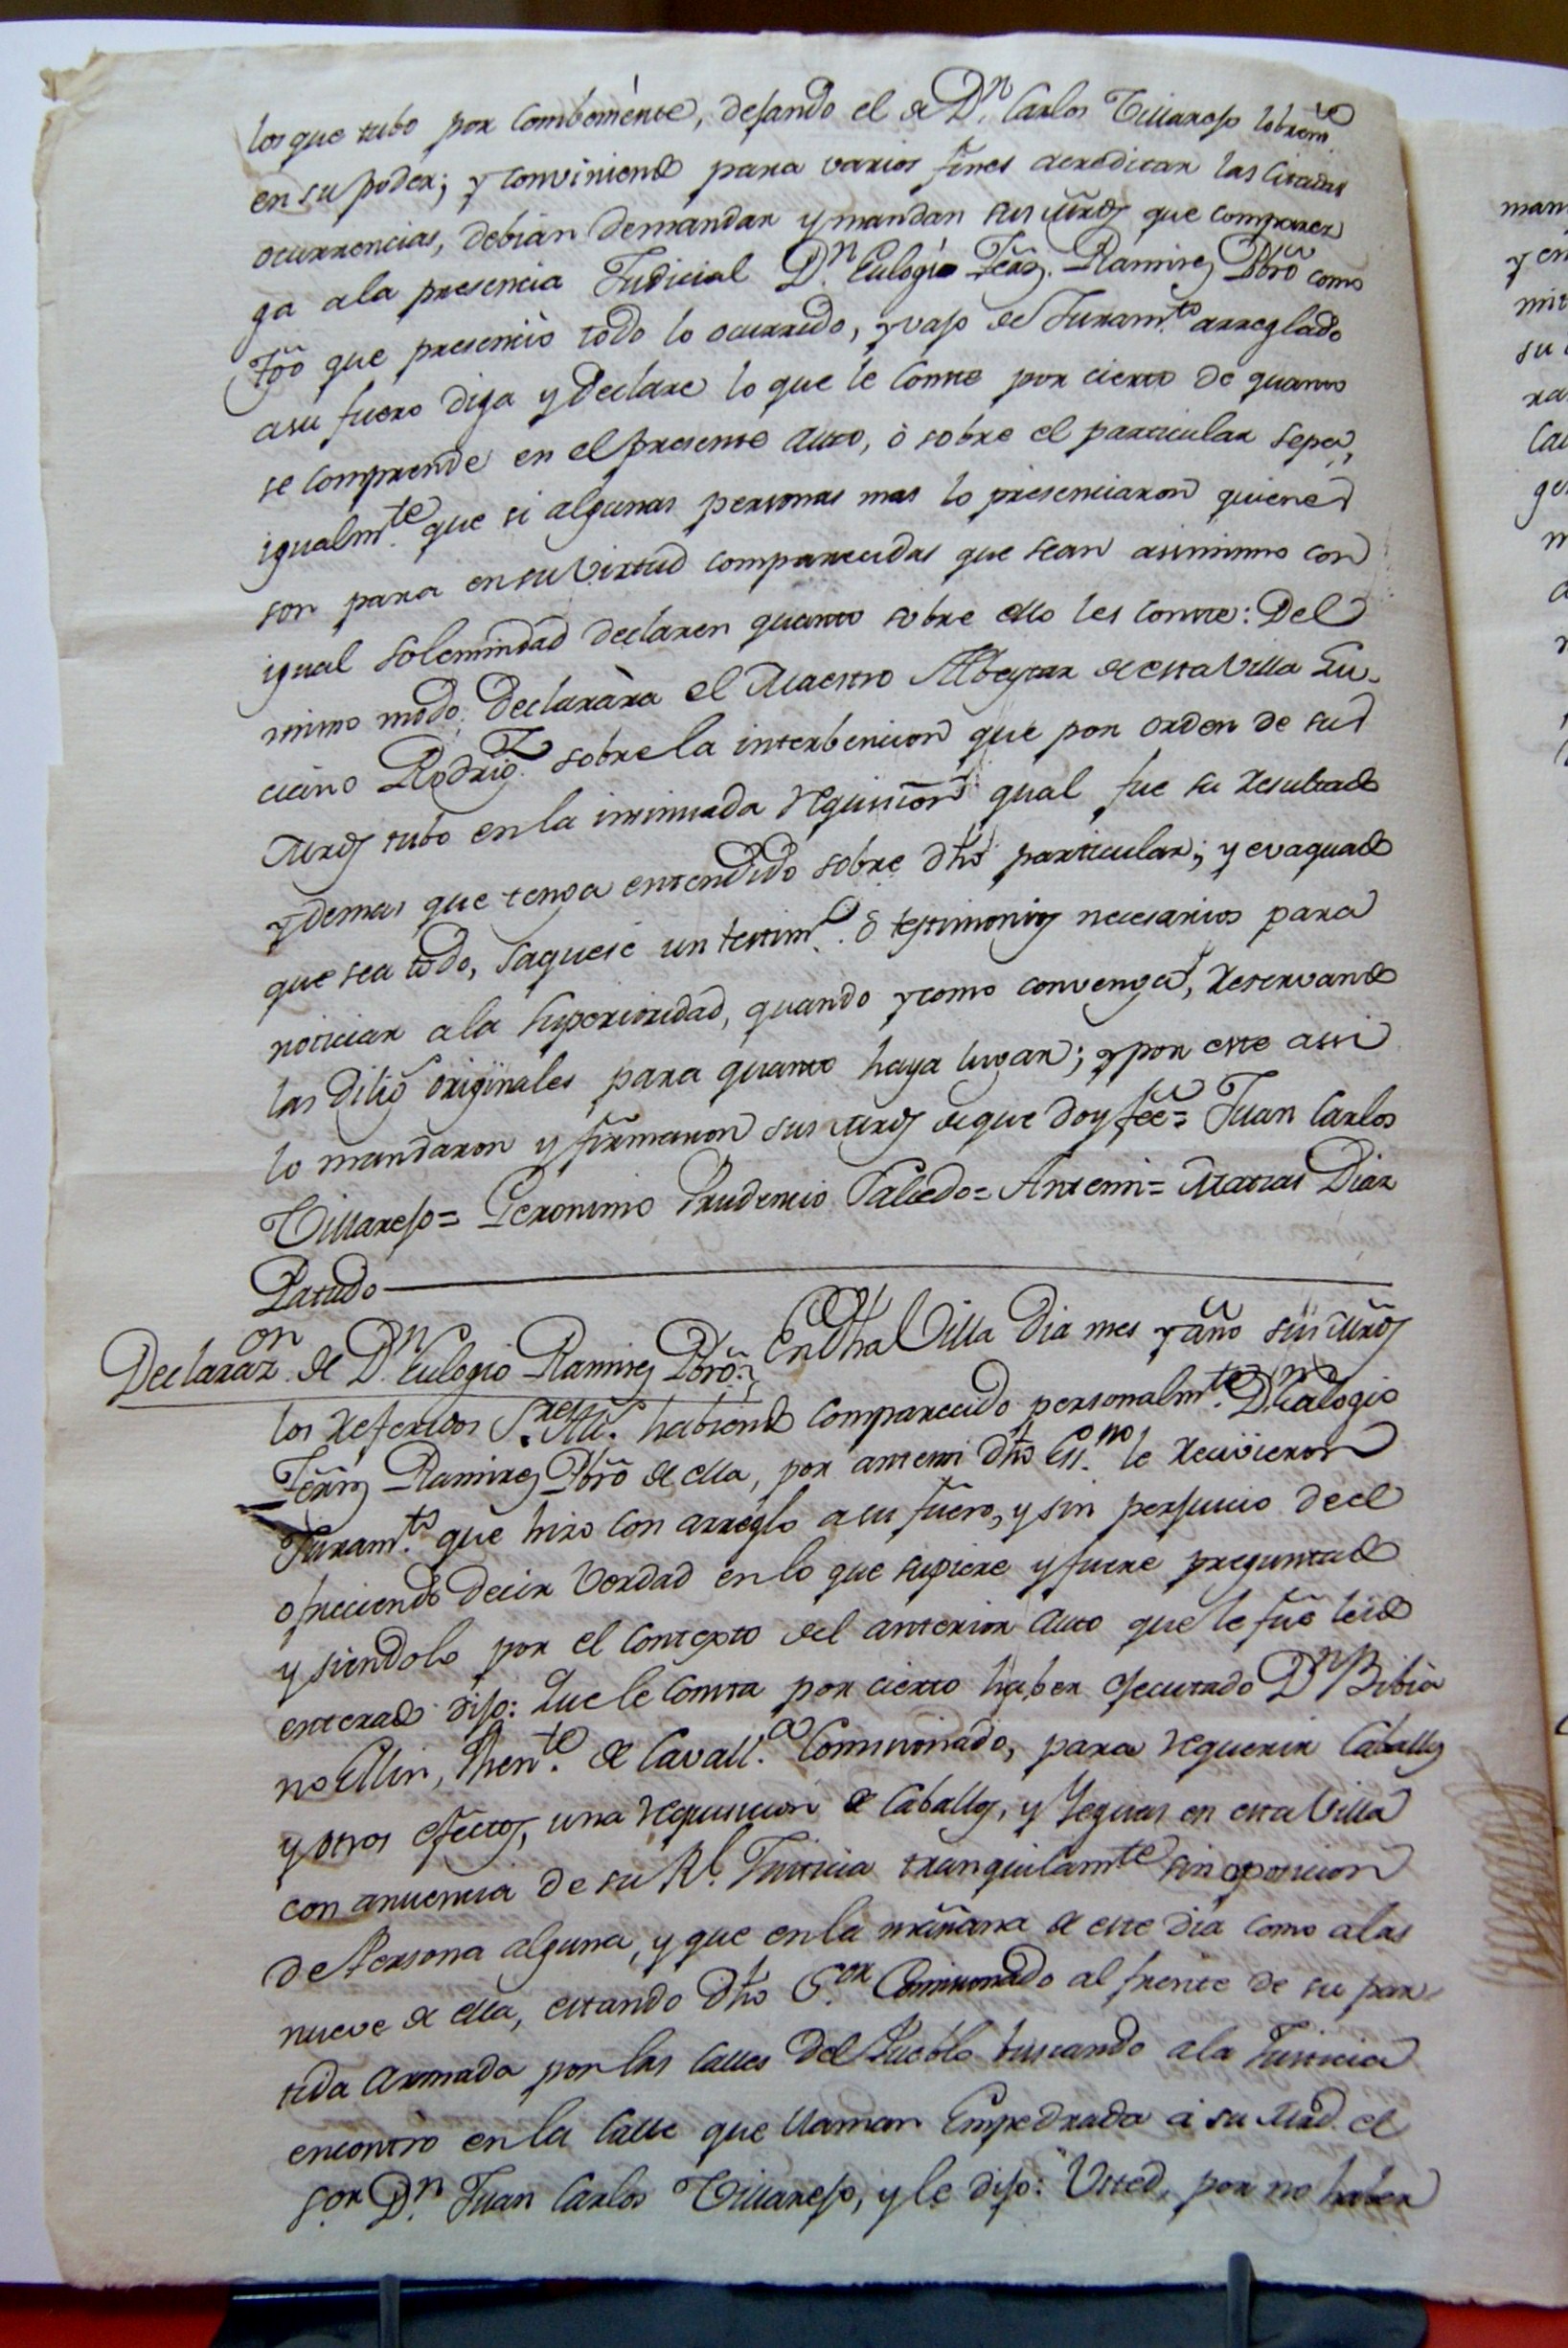 los que tubo por combeniente, dejando el de Dn. Carlos Villarejo
en su poder; y conviniendo para varios fines acreditar las citadas
ocurrencias, debian demandar y mandan sus mrds que comparez
ga ala presencia Judicial Dn. Eulogio Frnz. Ramirez Pbro como
tgo que presenció todo lo ocurrido, y vajo de Juramto. arreglado
asu fuero diga y declare lo que le conste por cierto de quanto
se comprende en el presente auto, ò sobre el particular sepa,
igualmte. que si algunas personas mas lo presenciaron quienes
son para en su virtud comparecidas que sean asimismo con
igual solemnidad declaren quanto sobre ello les conste: Del
mismo modo declarara el Maestro Albeytar de esta Villa Lu-
ciano Rodrigz. sobre la interbencion que por orden de sus
mrds tubo en la insinuada requisicion qual fue su resultado
y demas que tenga entendido sobre dho particular; y evaquado
que sea todo, saquese un testimo. ò testimonios necesarios para
noticiar ala Superioridad, quando y como convenga, reservando
las dilig originales para quanto haya lugar; y por este assi
lo mandaron y firmaron sus mrds de que doy fee= Juan Carlos
Villarejo= Geronimo Prudencio Salcedo= Antemi= Matias Diaz
Patudo
Declarazon. de Dn. Eulogio Ramirez Pbro. En dha Villa dia mes y año sus mrds
los referidos Sres. Alls. habiendo comparecido personalmte. Dn. Eulogio
Frnz Ramirez Pbro de ella, por antemi dho Essno. le recivieron
Juramto. que hizo con arreglo a su fuero, y sin perjuicio de el
ofreciendo decir verdad en lo que supiere y fuere preguntado
y siendolo por el contexto del anterior auto que le fue leido
enterado dijo: Que le consta por cierto haber ejecutado Dn Bibia
no Ellin, Thente. de Cavalla. Comisionado, para requerir Caballos
y otros efectos, una requisicion de Caballos, y Yeguas en esta Villa
con anuencia de su Rl. Justicia tranquilamte sin oposicion
de Persona alguna, y que en la mañana de este dia como alas
nueve de ella, estando dho Sor. Comisionado al frente de su par-
tida armada por las calles del Pueblo buscando ala Justicia
encontro en la Calle que llaman Empedrada á su Mrd. el
Sor. Dn. Juan Carlos Villarejo, y le dijo: Usted, por no haber